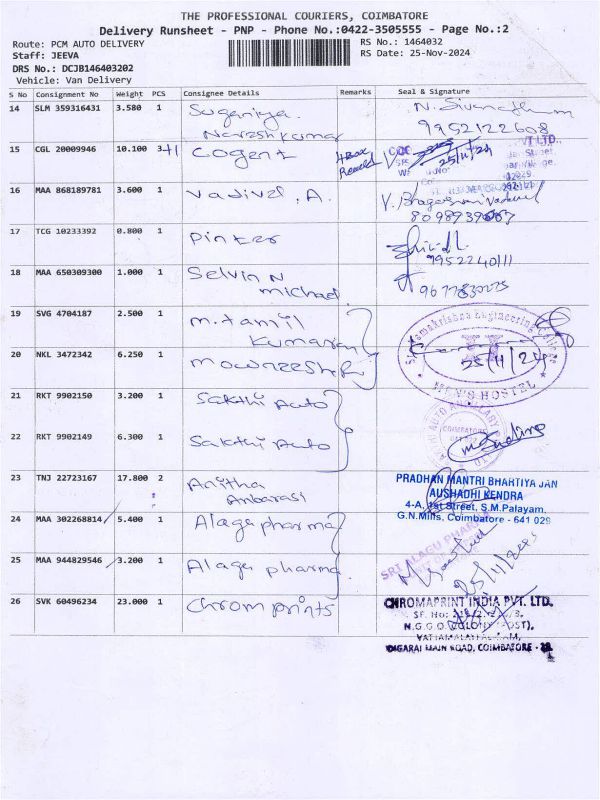 THE PROFESSIONAL COURIERS, COIMBATORE
Delivery Runsheet - PNP - Phone No.:0422-3505555 - Page No.:2
Route: PCM AUTO DELIVERY
RS No.: 1464032
Staff: JEEVA
RS Date: 25-Nov-2024
DRS No.: DCJB146403202
Vehicle: Van Delivery
S No Consignment No Weight PCS Consignee Details Remarks Seal & Signature
14 SLM 359316431 3.580 1 Suganiya.
Nareshkumar
9952122608
15 CGL 20009946 10.100 3+1 Cogent 4 Box
25/11/24
PVT LTD.,
16 MAA 868189781 3.600 1 Vadivel . A.
17 TCG 10233392 0.800 1
9952240111
18 MAA 650309300 1.000 1 Selvin N
michael
19 SVG 4704187 2.500 1 m. tamil
kumaran
Sri Ramakrishna Engineering College
25/11/24
MEN'S HOSTEL
20 NKL 3472342 6.250 1
21 RKT 9902150 3.200 1 Sakthi Auto
22 RKT 9902149 6.300 1 Sakthi Auto
COIMBATORE
23 TNJ 22723167 17.800 2 Anitha
Anbarasi
PRADHAN MANTRI BHARTIYA JAN
AUSHADHI KENDRA
4-A, 1st Street, S.M.Palayam,
G.N.Mills, Coimbatore - 641 029
24 MAA 302268814 5.400 1 Alagu pharma
SRI ALAGU PHARMA
25 MAA 944829546 3.200 1 Alagu pharma
25/11/24
26 SVK 60496234 23.000 1 Chrom prints
CHROMAPRINT INDIA PVT. LTD.
N.G.G.O. COLONY (POST),
VATTAMALAIPALAYAM,
DIGARAI MAIN ROAD, COIMBATORE -